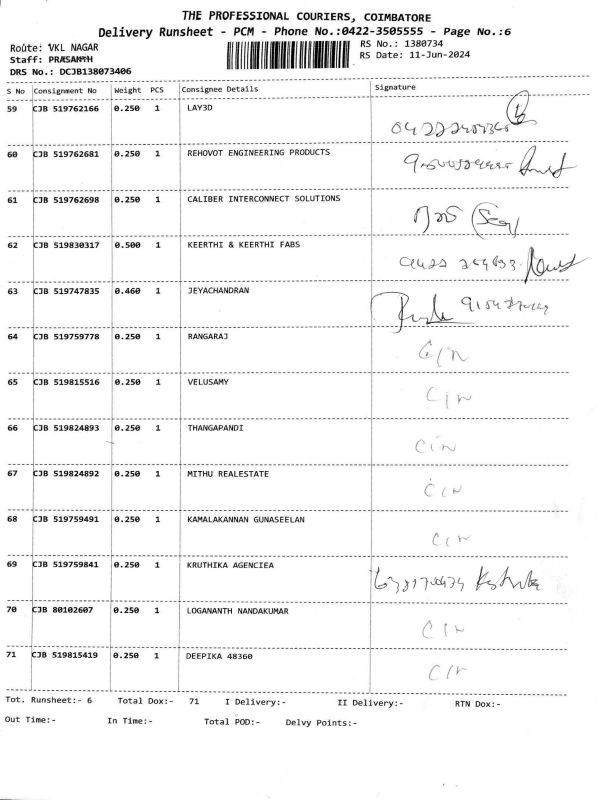 THE PROFESSIONAL COURIERS, COIMBATORE
Delivery Runsheet - PCM - Phone No.:0422-3505555 - Page No.:6
Route: VKL NAGAR
RS No.: 1380734
Staff: PRASANTH
RS Date: 11-Jun-2024
DRS No.: DCJB138073406
S No Consignment No Weight PCS Consignee Details Signature
59 CJB 519762166 0.250 1 LAY3D
60 CJB 519762681 0.250 1 REHOVOT ENGINEERING PRODUCTS
61 CJB 519762698 0.250 1 CALIBER INTERCONNECT SOLUTIONS
62 CJB 519830317 0.500 1 KEERTHI & KEERTHI FABS
63 CJB 519747835 0.460 1 JEYACHANDRAN
64 CJB 519759778 0.250 1 RANGARAJ
65 CJB 519815516 0.250 1 VELUSAMY
66 CJB 519824893 0.250 1 THANGAPANDI
67 CJB 519824892 0.250 1 MITHU REALESTATE
68 CJB 519759491 0.250 1 KAMALAKANNAN GUNASEELAN
69 CJB 519759841 0.250 1 KRUTHIKA AGENCIEA
70 CJB 80102607 0.250 1 LOGANANTH NANDAKUMAR
71 CJB 519815419 0.250 1 DEEPIKA 48360
Tot. Runsheet:- 6 Total Dox:- 71 I Delivery:- II Delivery:- RTN Dox:-
Out Time:- In Time:- Total POD:- Delvy Points:-